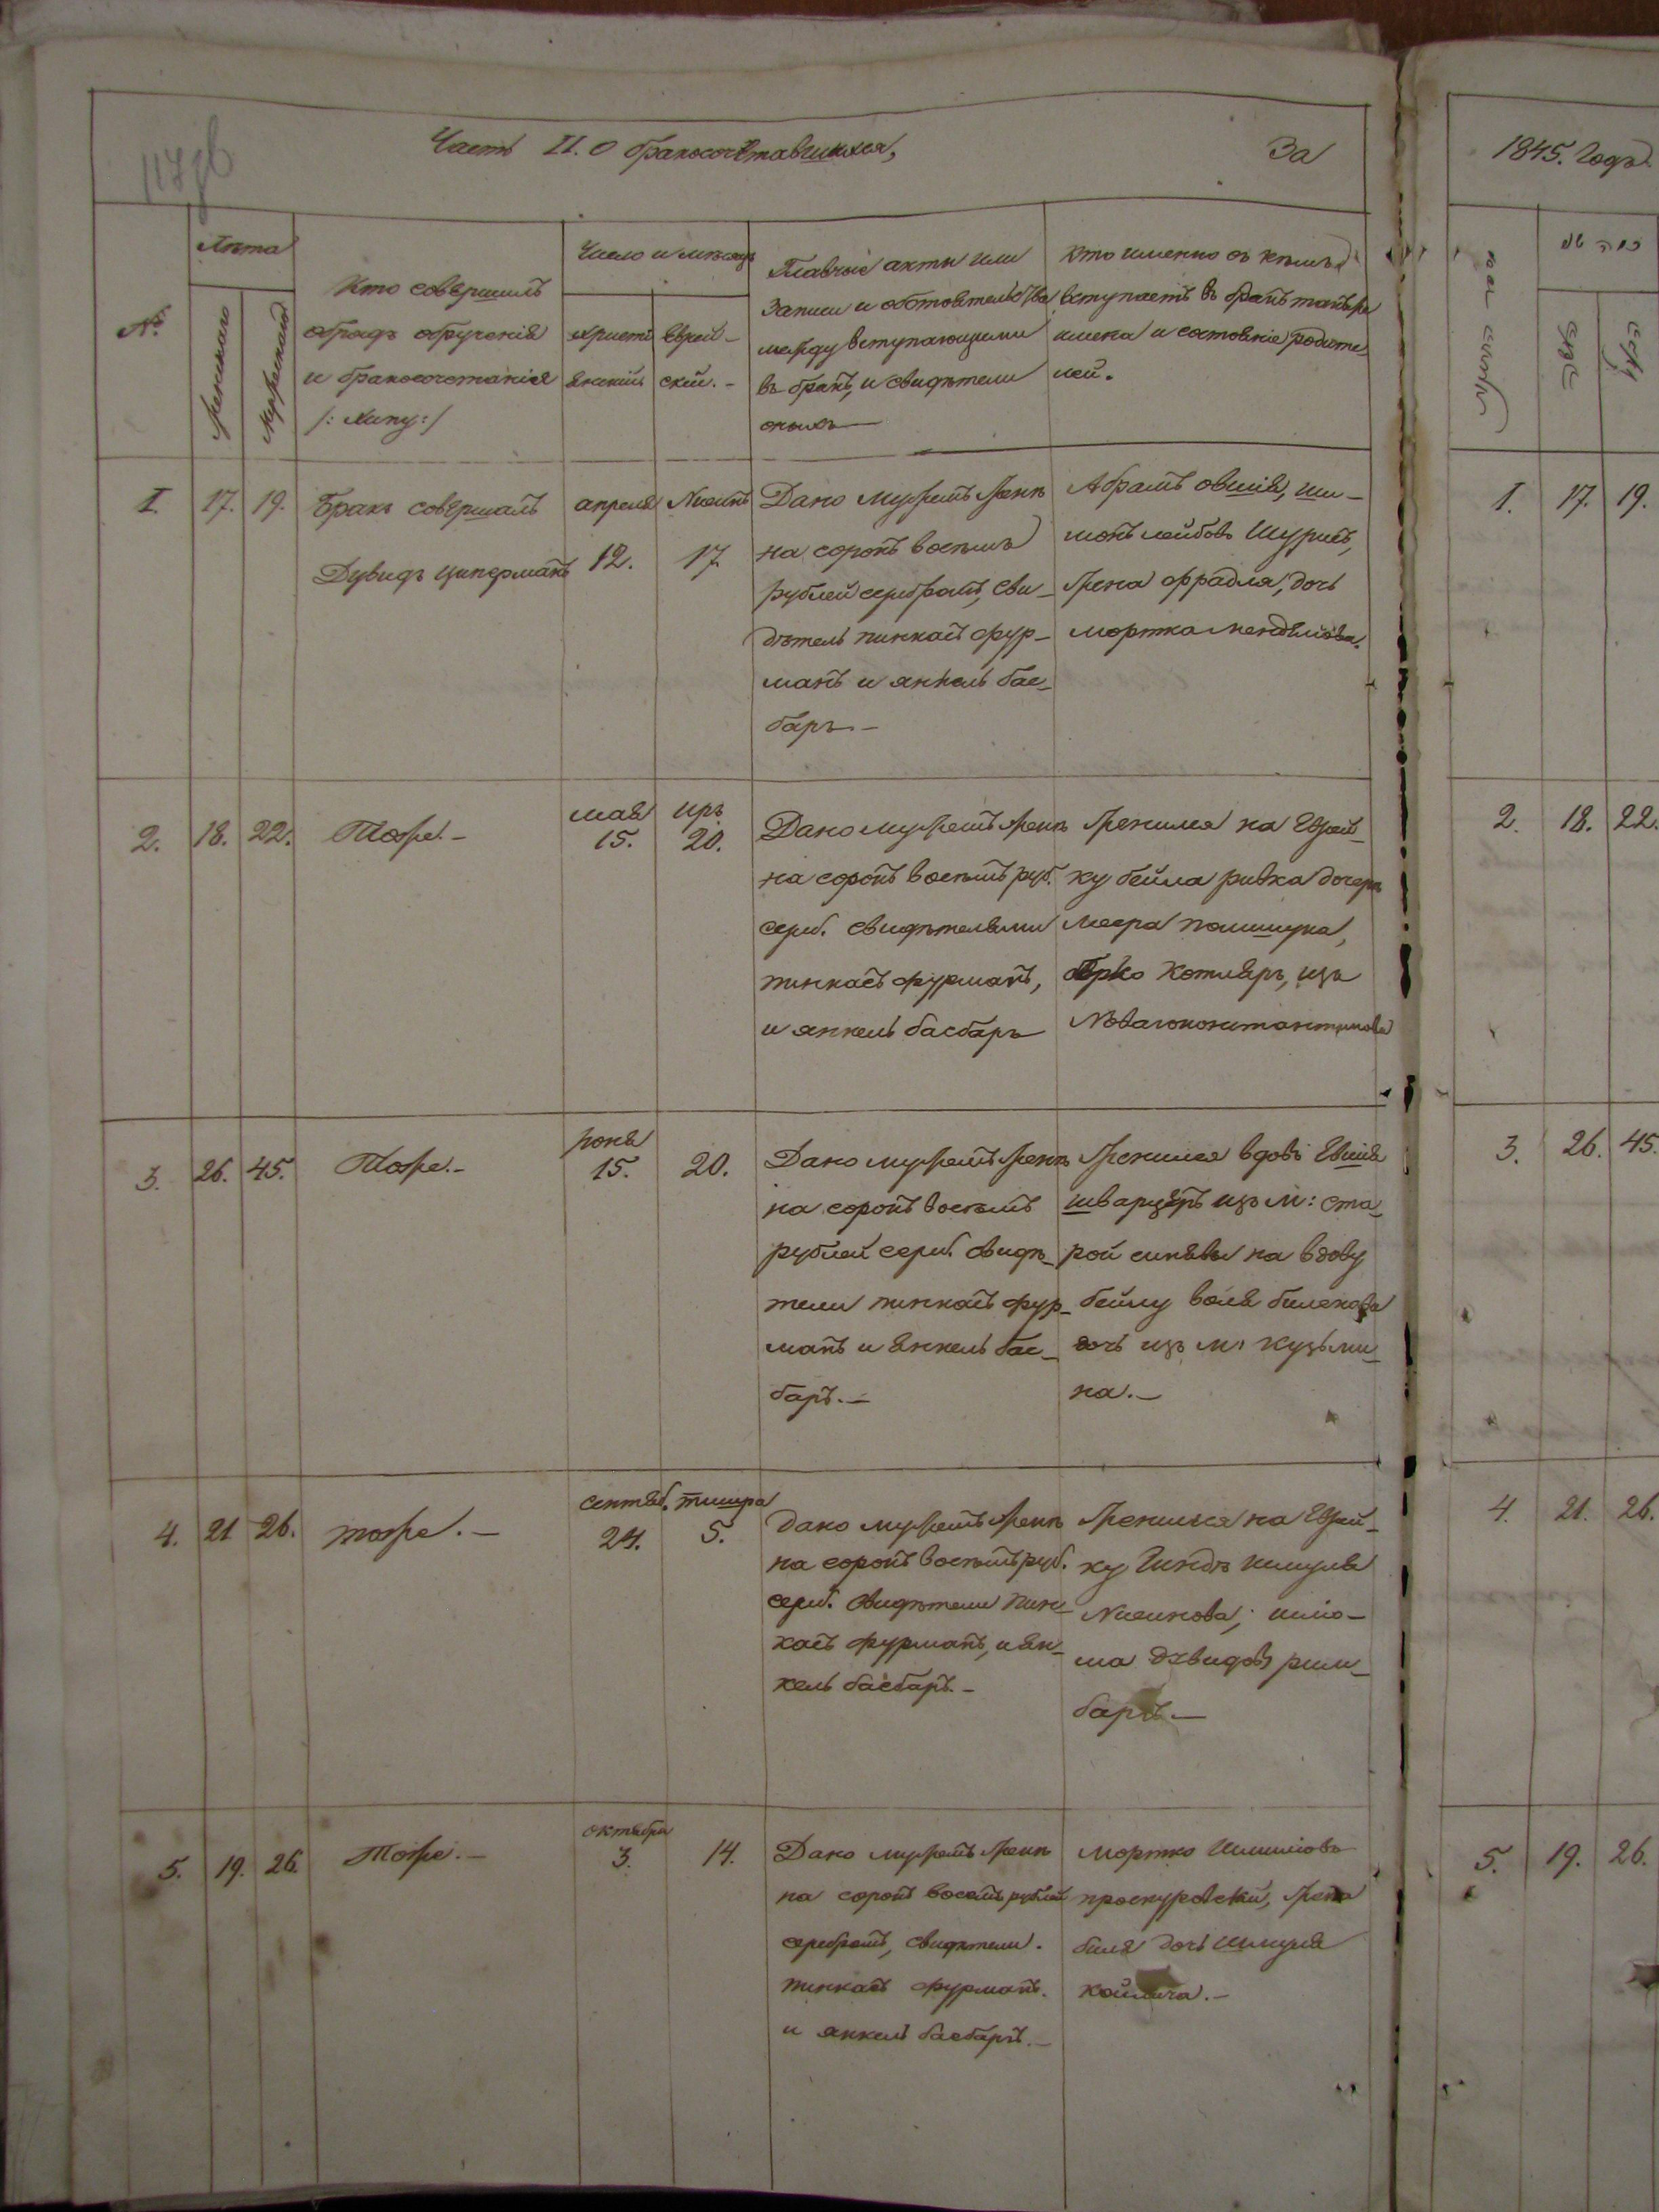 Часть II. О бракосочетавшихся,
За
1845. Годъ.
№
Лѣта
Женскаго
Мужескаго
Кто совершилъ
обрядъ обрученія
и бракосочетанія
/: хипу :/
Число и мѣсяцъ
христі
янскій
Еврей-
ской. -
Главные акты или
Записи и обстоятельства
между вступающими
въ бракъ, и свидѣтели
оныхъ
Кто именно съ кѣмъ
вступаетъ въ бракъ также
имена и состояніе родите-
лей.
1. 17. 19.
Бракъ совершалъ
Дувидъ Циперманъ
апреля 12.
Нисинъ 17
Дано мужемъ жене
на сорокъ восемъ
рублей серебромъ, сви-
дѣтель пинкасъ фур-
манъ и янкель бас-
баръ -
Абрамъ овшія, ши-
монъ лейбовъ Шурисъ,
жена фрадля, дочь
мортка менделіова.
2. 18. 22.
Тоже. -
мая 15.
иръ 20.
Дано мужемъ жене
на сорокъ восемъ руб.
сереб. свидѣтелями
пинкасъ фурманъ,
и янкель басбаръ
женился на Еврей-
ку бейла ривка дочеръ
меера полищука,
Берко Котляръ, изъ
Новагоконстантинова
3. 26. 45.
Тоже. -
юня 15.
20.
Дано мужемъ жене
на сорокъ восемъ
рублей сереб. свидѣ-
тели пинкасъ фур-
манъ и янкель бас-
баръ. -
женился вдовъ Евшія
шварцеръ изъ м: ста-
рой синявы на вдову
бейлу
дочь изъ м: кузьми-
на. -
4. 21 26.
тоже. -
сентяб. 24.
тишра 5.
Дано мужемъ жене
на сорокъ восемъ руб.
сереб. свидѣтели пин-
касъ фурманъ, и ян-
кель басбаръ. -
женился на Еврей-
ку Гиндъ шмуля
Нисинова; шліо-
ма дувидовъ
баръ. -
5. 19. 26.
Тоже. -
октября 3.
14.
Дано мужемъ жене
на сорокъ восемъ рублей
серебромъ, свидѣтели.
пинкасъ фурманъ.
и янкель басбаръ. -
Мортко
проскуровскій, жена
биля дочь шмуля
1. 17. 19.
2. 18. 22.
3. 26. 45.
4. 21. 26.
5. 19. 26.